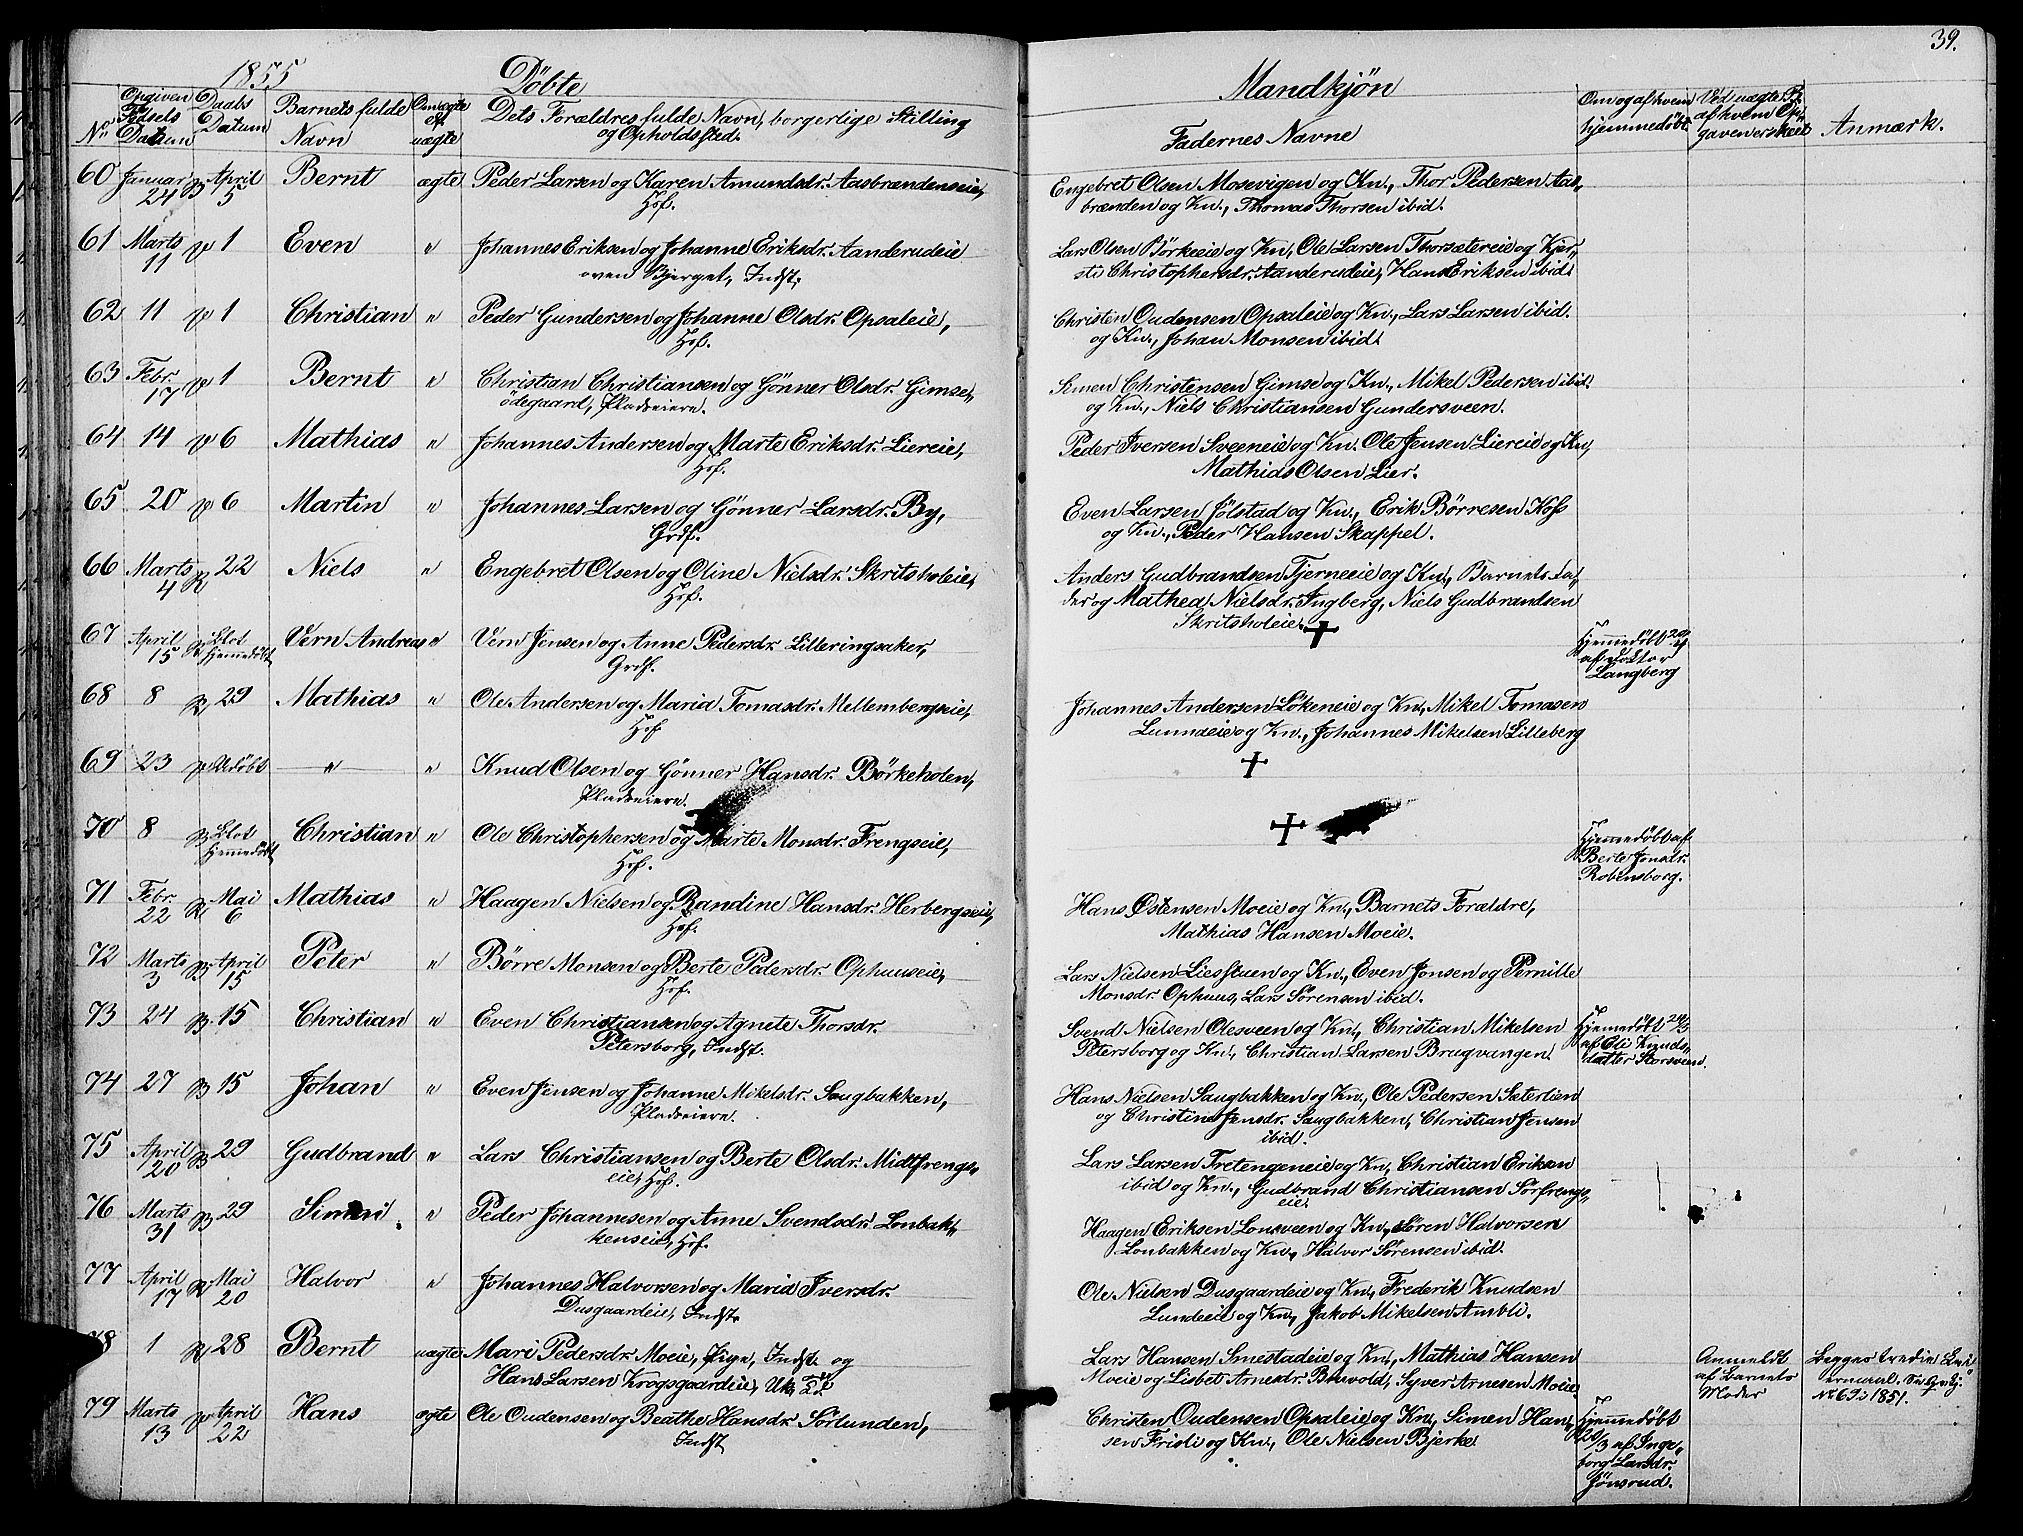 39.
1855 Döbte Mandkjön
No Opgiven Fødsels Datum Daabs Datum Barnets fulde Navn Om ægte el. uægte Dets Forældres fulde Navn, borgerlige Stilling og Opholdssted. Fadernes Navne Om og af hvem hjemmedöbt Ved uægte B. af hvem Opgaven er skeet Anmærk.
60 Januar 24 April 5 Bernt ægte Peder Larsen og Karen Amundsdr. Aasbrændenseie, Engebret Olsen Mosevigen og Kn., Thor Pedersen Aas„
Hosf. brænden og Kn., Thomas Thorsen ibid.
61 Marts 11 1 Even „ Johannes Eriksen og Johanne Eriksdr. Aanderudeie Lars Olsen Börkeeie og Kn., Ole Larsen Thorsætereie og Kjer„
oven Bjerget, Indst. sti Christophersdr. Aanderudeie, Hans Eriksen ibid.
62 11 1 Christian „ Peder Gundersen og Johanne Olsdr. Opsaleie, Christen Oudensen Opsaleie og Kn., Lars Larsen ibid.
Hosf. og Kn., Johan Monsen ibid.
63 Febr. 17 1 Bernt „ Christian Christiansen og Gönner Olsdr. Gimse„ Simen Christensen Gimse og Kn., Mikel Pedersen ibid.
ödegaard, Pladseiere. og Kn., Niels Christiansen Gundersveen.
64 14 6 Mathias „ Johannes Andersen og Marte Eriksdr. Liereie, Peder Iversen Sveeneie og Kn. Ole Jensen Liereie og Kn,
Hosf. Mathias Olsen Lier.
65 20 6 Martin „ Johannes Larsen og Gönner Larsdr. By, Even Larsen Jölstad og Kn., Erik Börresen Hoff
Grdf. og Kn., Peder Hansen Skappel.
66 Marts 4 22 Niels „ Engebret Olsen og Oline Nielsdr. Skritsholeie, Anders Gudbrandsen Tjerneeie og Kn., Barnets Fa„
Hosf. der og Mathea Nielsdr. Ingberg, Niels Gudbrandsen
Skritsholeie.
67 April 15 Blot hjemmedöbt Vern Andreas „ Vern Jensen og Anne Pedersdr. Lilleringsaker, Grdf. † Hjemmedöbt 20/4 af Doktor Langberg
68 8 29 Mathias „ Ole Andersen og Maria Tomasdr. Mellembergseie, Johannes Andersen Lökeneie og Kn., Mikel Tomasen
Hosf Lunndeie og Kn., Johannes Mikelsen Lilleberg
69 23 Udöbt „ „ Knud Olsen og Gönner Hansdr. Börkeholen, †
Pladseiere.
70 8 Blot hjemmedöbt Christian „ Ole Christophersen og Marte Monsdr. Frengseie, Hosf. † Hjemmedöbt af Berte Jonsdr. Robensborg.
71 Febr. 22 Mai 6 Mathias „ Haagen Nielsen og Randine Hansdr. Herbergseie, Hans Östensen Moeie og Kn., Barnets Forældre,
Hosf. Mathias Hansen Moeie.
72 Marts 3 April 15 Peter „ Börre Monsen og Berte Pedersdr. Ophuuseie, Lars Nielsen Liesstuen og Kn., Even Jonsen og Pernille
Hosf. Monsdr. Ophuus, Lars Sörensen ibid.
73 24 15 Christian „ Even Christiansen og Agnete Thorsdr. Svend Nielsen Olesveen og Kn., Christian Mikelsen
Petersborg, Indst. Petersborg og Kn., Christian Larsen Brugvangen. Hjemmedöbt 24/3 af Eli Knuds„ datter Storsveen.
74 27 15 Johan „ Even Jensen og Johanne Mikelsdr. Saugbakken, Hans Nielsen Saugbakken og Kn., Ole Pedersen Sæterlien
Pladseiere. og Christine Jensdr. Saugbakken, Christian Jensen
ibid.
75 April 20 29 Gudbrand „ Lars Christiansen og Berte Olsdr. Midtfrengs„ Lars Larsen Fretengeneie og Kn., Christian Eriksen
eie, Hosf. ibid og Kn., Gudbrand Christiansen Sörfrengs„
eie.
76 Marts 31 29 Simen „ Peder Johannesen og Anne Svendsdr. Lonbak„ Haagen Eriksen Lonsveen og Kn., Sören Halvorsen
kenseie, Hosf. Lonbakken og Kn., Halvor Sörensen ibid.
77 April 17 Mai 20 Halvor „ Johannes Halvorsen og Maria Iversdr. Ole Nielsen Dusgaardeie og Kn., Frederik Knudsen
Dusgaardeie, Indst. Lundeeie og Kn., Jakob Mikelsen Ambli.
78 1 28 Bernt uægte Mari Pedersdr. Moeie, Pige, Indst. og Lars Hansen Smestadeie og Kn., Mathias Hansen
Hans Larsen Krogsgaardeie, Uk. Moeie og Lisbet Arnesdr. Bævold, Syver Arnesen Moeie. Anmeldt af Barnets Moder Begges tredie Leiermaal. No 69 i 1851.
79 Marts 13 April 22 Hans ægte Ole Oudensen og Beathe Hansdr. Sörlunden, Christen Oudensen Opsaleie og Kn., Simen Han„
Indst sen Frisli og Kn., Ole Nielsen Bjerke. Hjemmedöbt 20/3 af Inge„ borg Larsdr. Jönsrud.